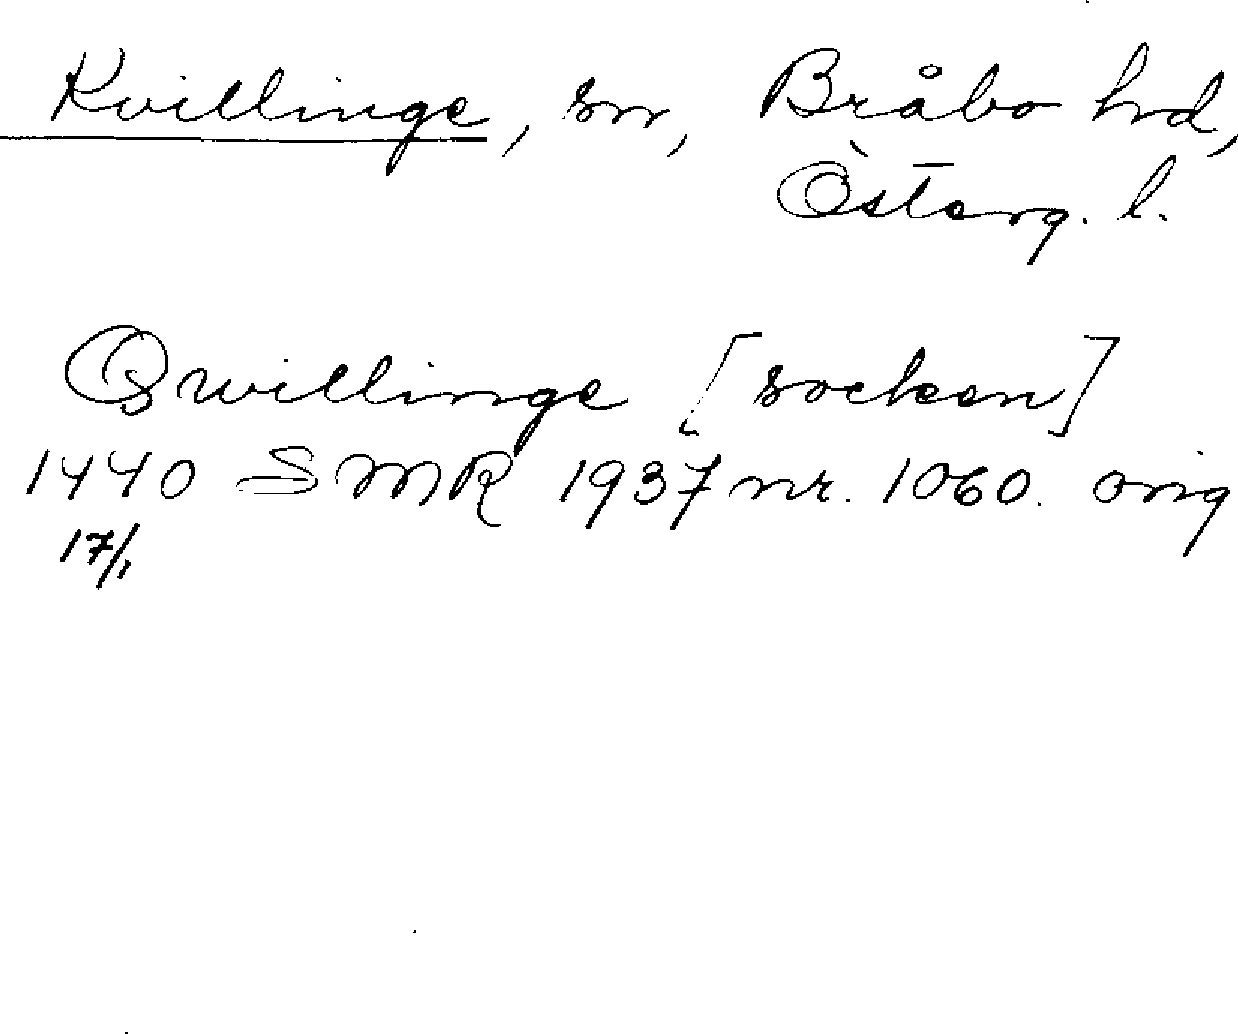 Kvillinge, sn, Bråbo hd,
Österg. l.
Qwillinge [socken]
1440 SMR 1937 nr. 1060. orig
17/1